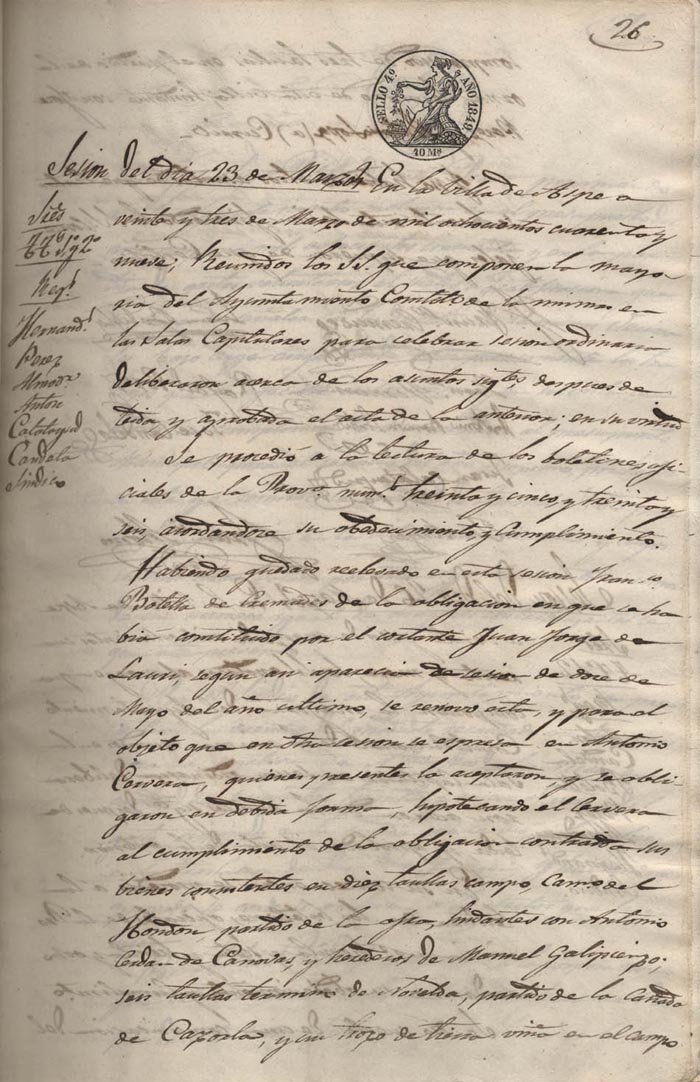 26
SELLO 4º AÑO 1849
40 Ms
Sesion del dia 23 de Marzo En la Villa de Aspe a
veinte y tres de Marzo de mil ochocientos cuarenta y
nueve; Reunidos los SS. que componen la mayo
ria del Ayuntamiento Constl. de la misma en
las Salas Capitulares para celebrar sesion ordinaria
deliberaron acerca de los asuntos sigtes despues de
leida y aprobada el acta de la anterior; en su virtud
Sres
Regs
Hernandz
Perez
Almodr
Anton
Calatayud
Candela
Sindico
Se procedio a la lectura de los boletines ofi
ciales de la Prova. nums. treinta y cinco, y treinta y
seis, acordandose su obedecimiento y cumplimiento.
Habiendo quedado relevado en esta sesion Franco.
Botella de Cremades de la obligacion en que se ha
bia constituido por el cortante Juan Jorge de
Lauri, segun asi aparecia de sesion de doce de
Mayo del año ultimo, se renovo esta, y para el
objeto que en dha sesion se espresa en Antonio
Cervera, quienes presentes la aceptaron y se obli-
garon en debida forma, hipotecando el Cervera
al cumplimiento de la obligacion contraida sus
bienes consistentes en diez taullas campo, Camo. del
Hondon, partido de la lindantes con Antonio
Cerdan de Canovas, y herederos de Manuel Galipienzo;
seis taullas termino de Novelda, partido de la Cañada
de Cazorla, y un trozo de tierra viña en el campo